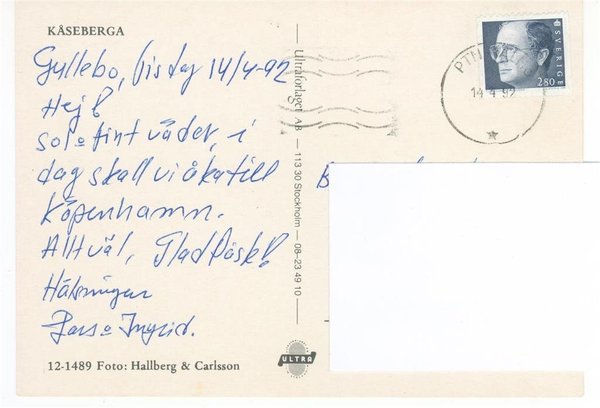 KÅSEBERGA
Gyllebo, Tisdag 14/4-92
Hej!
sol o fint väder, i
dag skall vi åka till
Köpenhamn.
Allt väl, Glad Påsk!
Hälsningar
Lars o Ingrid.
12-1489 Foto: Hallberg & Carlsson
Ultraförlaget AB — 113 30 Stockholm — 08-23 49 10
ULTRA
SVERIGE
280
14 4 92